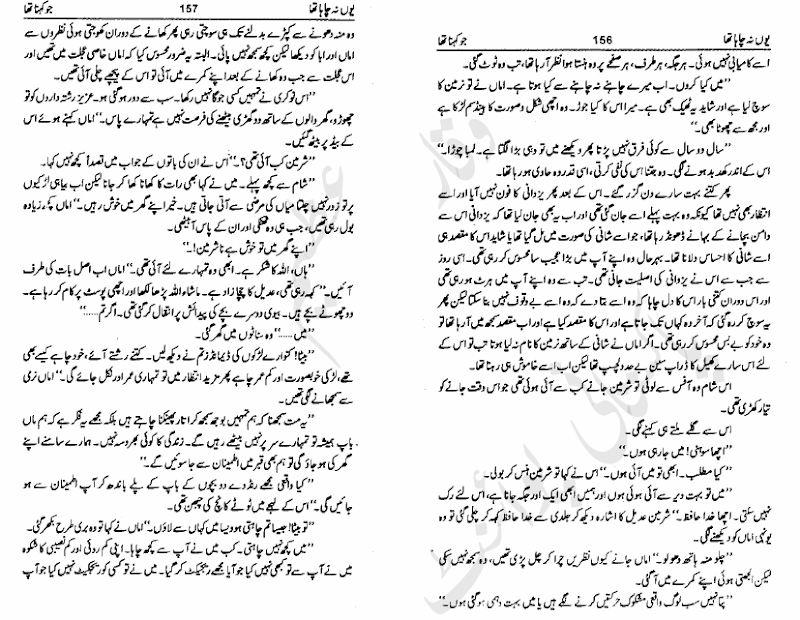 یوں نہ چاہا تھا 156 جو کہنا تھا
اسے کامیابی نہیں ہوئی۔ ہر جگہ، ہر طرف، ہر صفحے پر وہ ہنستا ہوا نظر آ رہا تھا، تب وہ ٹوٹ گئی۔
”میں کیا کروں۔ اب میرے چاہنے نہ چاہنے سے کیا ہوتا ہے۔ اماں نے تو نرمین کا
سوچ لیا ہے اور شاید یہ ٹھیک بھی ہے۔ میرا اس کا کیا جوڑ۔ وہ اچھی شکل و صورت کا ہینڈسم لڑکا ہے
اور مجھ سے چھوٹا بھی۔“
”سال دو سال سے کوئی فرق نہیں پڑتا پھر دیکھنے میں تو وہی بڑا لگتا ہے۔ لمبا چوڑا۔“
اس کے اندر کھد بد ہونے لگی۔ وہ جتنا اس کی نفی کرتی، اسی قدر وہ حاوی ہو رہا تھا۔
پھر کتنے بہت سارے دن گزر گئے۔ اس کے بعد پھر یزدانی کا فون نہیں آیا اور اسے
انتظار بھی نہیں تھا کیونکہ وہ بہت پہلے اسے جان گئی تھی اور اب یہ بھی جان لیا تھا کہ یزدانی اس سے
دامن بچانے کے بہانے ڈھونڈ رہا تھا، جو اسے شانی کی صورت میں مل گیا تھا یا شاید اس کا مقصد ہی
اسے شانی کا احساس دلانا تھا۔ بہرحال وہ اپنے آپ میں بڑا عجیب سا محسوس کر رہی تھی۔ اسی روز
سے جب سے اس نے یزدانی کی اصلیت جانی تھی۔ تب سے وہ اپنے آپ میں ہرٹ ہو رہی تھی
اور اس دوران کتنی بار اس کا دل چاہا کہ وہ اسے بتا دے کہ وہ اسے بے وقوف نہیں بنا سکتا لیکن پھر
یہ سوچ کر رہ گئی کہ آخر وہ کہاں تک جاتا ہے اور اس کا مقصد کیا ہے اور اب مقصد سمجھ میں آ رہا تھا تو
وہ خود کو بے بس محسوس کر رہی تھی۔ اگر اماں نے شانی کے ساتھ نرمین کا نام نہ لیا ہوتا تب تو اس کے
لئے اس سارے کھیل کا ڈراپ سین بے حد دلچسپ تھا لیکن اب اسے خاموش ہی رہنا تھا۔
اس شام وہ آفس سے لوٹی تو شرمین جانے کب سے آئی ہوئی تھی جو اس وقت جانے کو
تیار کھڑی تھی۔
اس سے گلے ملتے ہی کہنے لگی۔
”اچھا سوہنی! میں جا رہی ہوں۔“
”کیا مطلب۔ ابھی تو میں آئی ہوں۔“ اس نے کہا تو شرمین ہنس کر بولی۔
”میں تو بہت دیر سے آئی ہوئی ہوں اور ہمیں ابھی ایک اور جگہ جانا ہے، اس لئے رک
نہیں سکتی۔ اچھا خدا حافظ۔“ شرمین عدیل کا اشارہ دیکھ کر جلدی سے خدا حافظ کہہ کر چلی گئی تو وہ
یونہی اماں کو دیکھنے لگی۔
”چلو منہ ہاتھ دھو لو۔“ اماں جانے کیوں نظریں چرا کر چل پڑی تھیں، وہ سمجھ نہیں سکی
لیکن الجھتی ہوئی اپنے کمرے میں آ گئی۔
”پتا نہیں سب لوگ واقعی مشکوک حرکتیں کرنے لگے ہیں یا میں بہت وہمی ہو گئی ہوں۔“
یوں نہ چاہا تھا 157 جو کہنا تھا
وہ منہ دھونے سے کپڑے بدلنے تک یہی سوچتی رہی پھر کھانے کے دوران کھوجتی ہوئی نظروں سے
اماں اور ابا کو دیکھا لیکن کچھ سمجھ نہیں پائی۔ البتہ یہ ضرور محسوس کیا کہ اماں خاصی عجلت میں تھیں اور
اس عجلت سے جب وہ کھانے کے بعد اپنے کمرے میں آئی تو اس کے پیچھے چلی آئی تھیں۔
”اس نوکری نے تمہیں کسی جوگا نہیں رکھا۔ سب سے دور ہو گئی ہو۔ عزیز رشتہ داروں کو تو
چھوڑو، گھر والوں کے ساتھ دو گھڑی بیٹھنے کی فرصت نہیں ہے تمہارے پاس۔“ اماں کہتے ہوئے اس
کے بیڈ پر بیٹھ گئیں۔
”شرمین کب آئی تھی؟۔“ اس نے ان کی باتوں کے جواب میں قصداً کچھ نہیں کہا۔
”شام سے کچھ پہلے۔ میں نے کہا بھی رات کا کھانا کھا کر جانا لیکن اب بیاہی لڑکیوں
پر تو زور نہیں چلتا میاں کی مرضی سے آتی جاتی ہیں۔ خیر اپنے گھر میں خوش رہیں۔“ اماں کچھ زیادہ
بول رہی تھیں، جب ہی وہ ٹھٹکی اور ان کے پاس آ بیٹھی۔
”اپنے گھر میں تو خوش ہے نا شرمین!۔“
”ہاں، اللہ کا شکر ہے۔ ابھی وہ تمہارے لئے آئی تھی۔“ اماں اب اصل بات کی طرف
آئیں۔ ”کہہ رہی تھی، عدیل کا چچا زاد ہے۔ ماشاء اللہ پڑھا لکھا اور اچھی پوسٹ پر کام کر رہا ہے۔
دو چھوٹے بچے ہیں۔ بیوی دوسرے بچے کی پیدائش پر انتقال کر گئی تھی۔ اگر تم.....“
”میں.....“ وہ سناٹوں میں گھر گئی۔
”بیٹا! کنوارے لڑکوں کی ڈیمانڈز تم نے دیکھ لیں۔ کتنے رشتے آئے، خود چاہے کیسے بھی
تھے، لڑکی خوبصورت اور کم عمر چاہے پھر مزید انتظار میں تو تمہاری عمر اور نکل جائے گی۔“ اماں نری
سے سمجھانے لگی تھیں۔
”یہ مت سمجھنا کہ ہم تمہیں بوجھ سمجھ کر اتار پھینکنا چاہتے ہیں بلکہ مجھے یہ فکر ہے کہ ہم ماں
باپ ہمیشہ تو تمہارے سر پر نہیں بیٹھے رہیں گے۔ زندگی کا کوئی بھروسہ نہیں۔ ہمارے سامنے اپنے
گھر کی ہو جاؤ گی تو ہم بھی قبر میں اطمینان سے جا سوئیں گے۔“
”کیا واقعی مجھے رنڈوے دو بچوں کے باپ کے پلے باندھ کر آپ اطمینان سے سو
جائیں گی۔“ اس کے لہجے میں ٹوٹے کانچ کی چبھن تھی۔
”تو بیٹا! جیسا تم چاہتی ہو ویسا میں کہاں سے لاؤں۔“ اماں نے کہا تو وہ بری طرح بکھر گئی۔
”میں کچھ نہیں چاہتی۔ کب میں نے آپ سے کچھ چاہا۔ اپنی کم روئی اور کم نصیبی کا شکوہ
میں نے آپ سے تو کبھی نہیں کیا جو آیا مجھے ریجیکٹ کر گیا۔ میں نے تو کسی کو ریجیکٹ نہیں کیا جو آپ